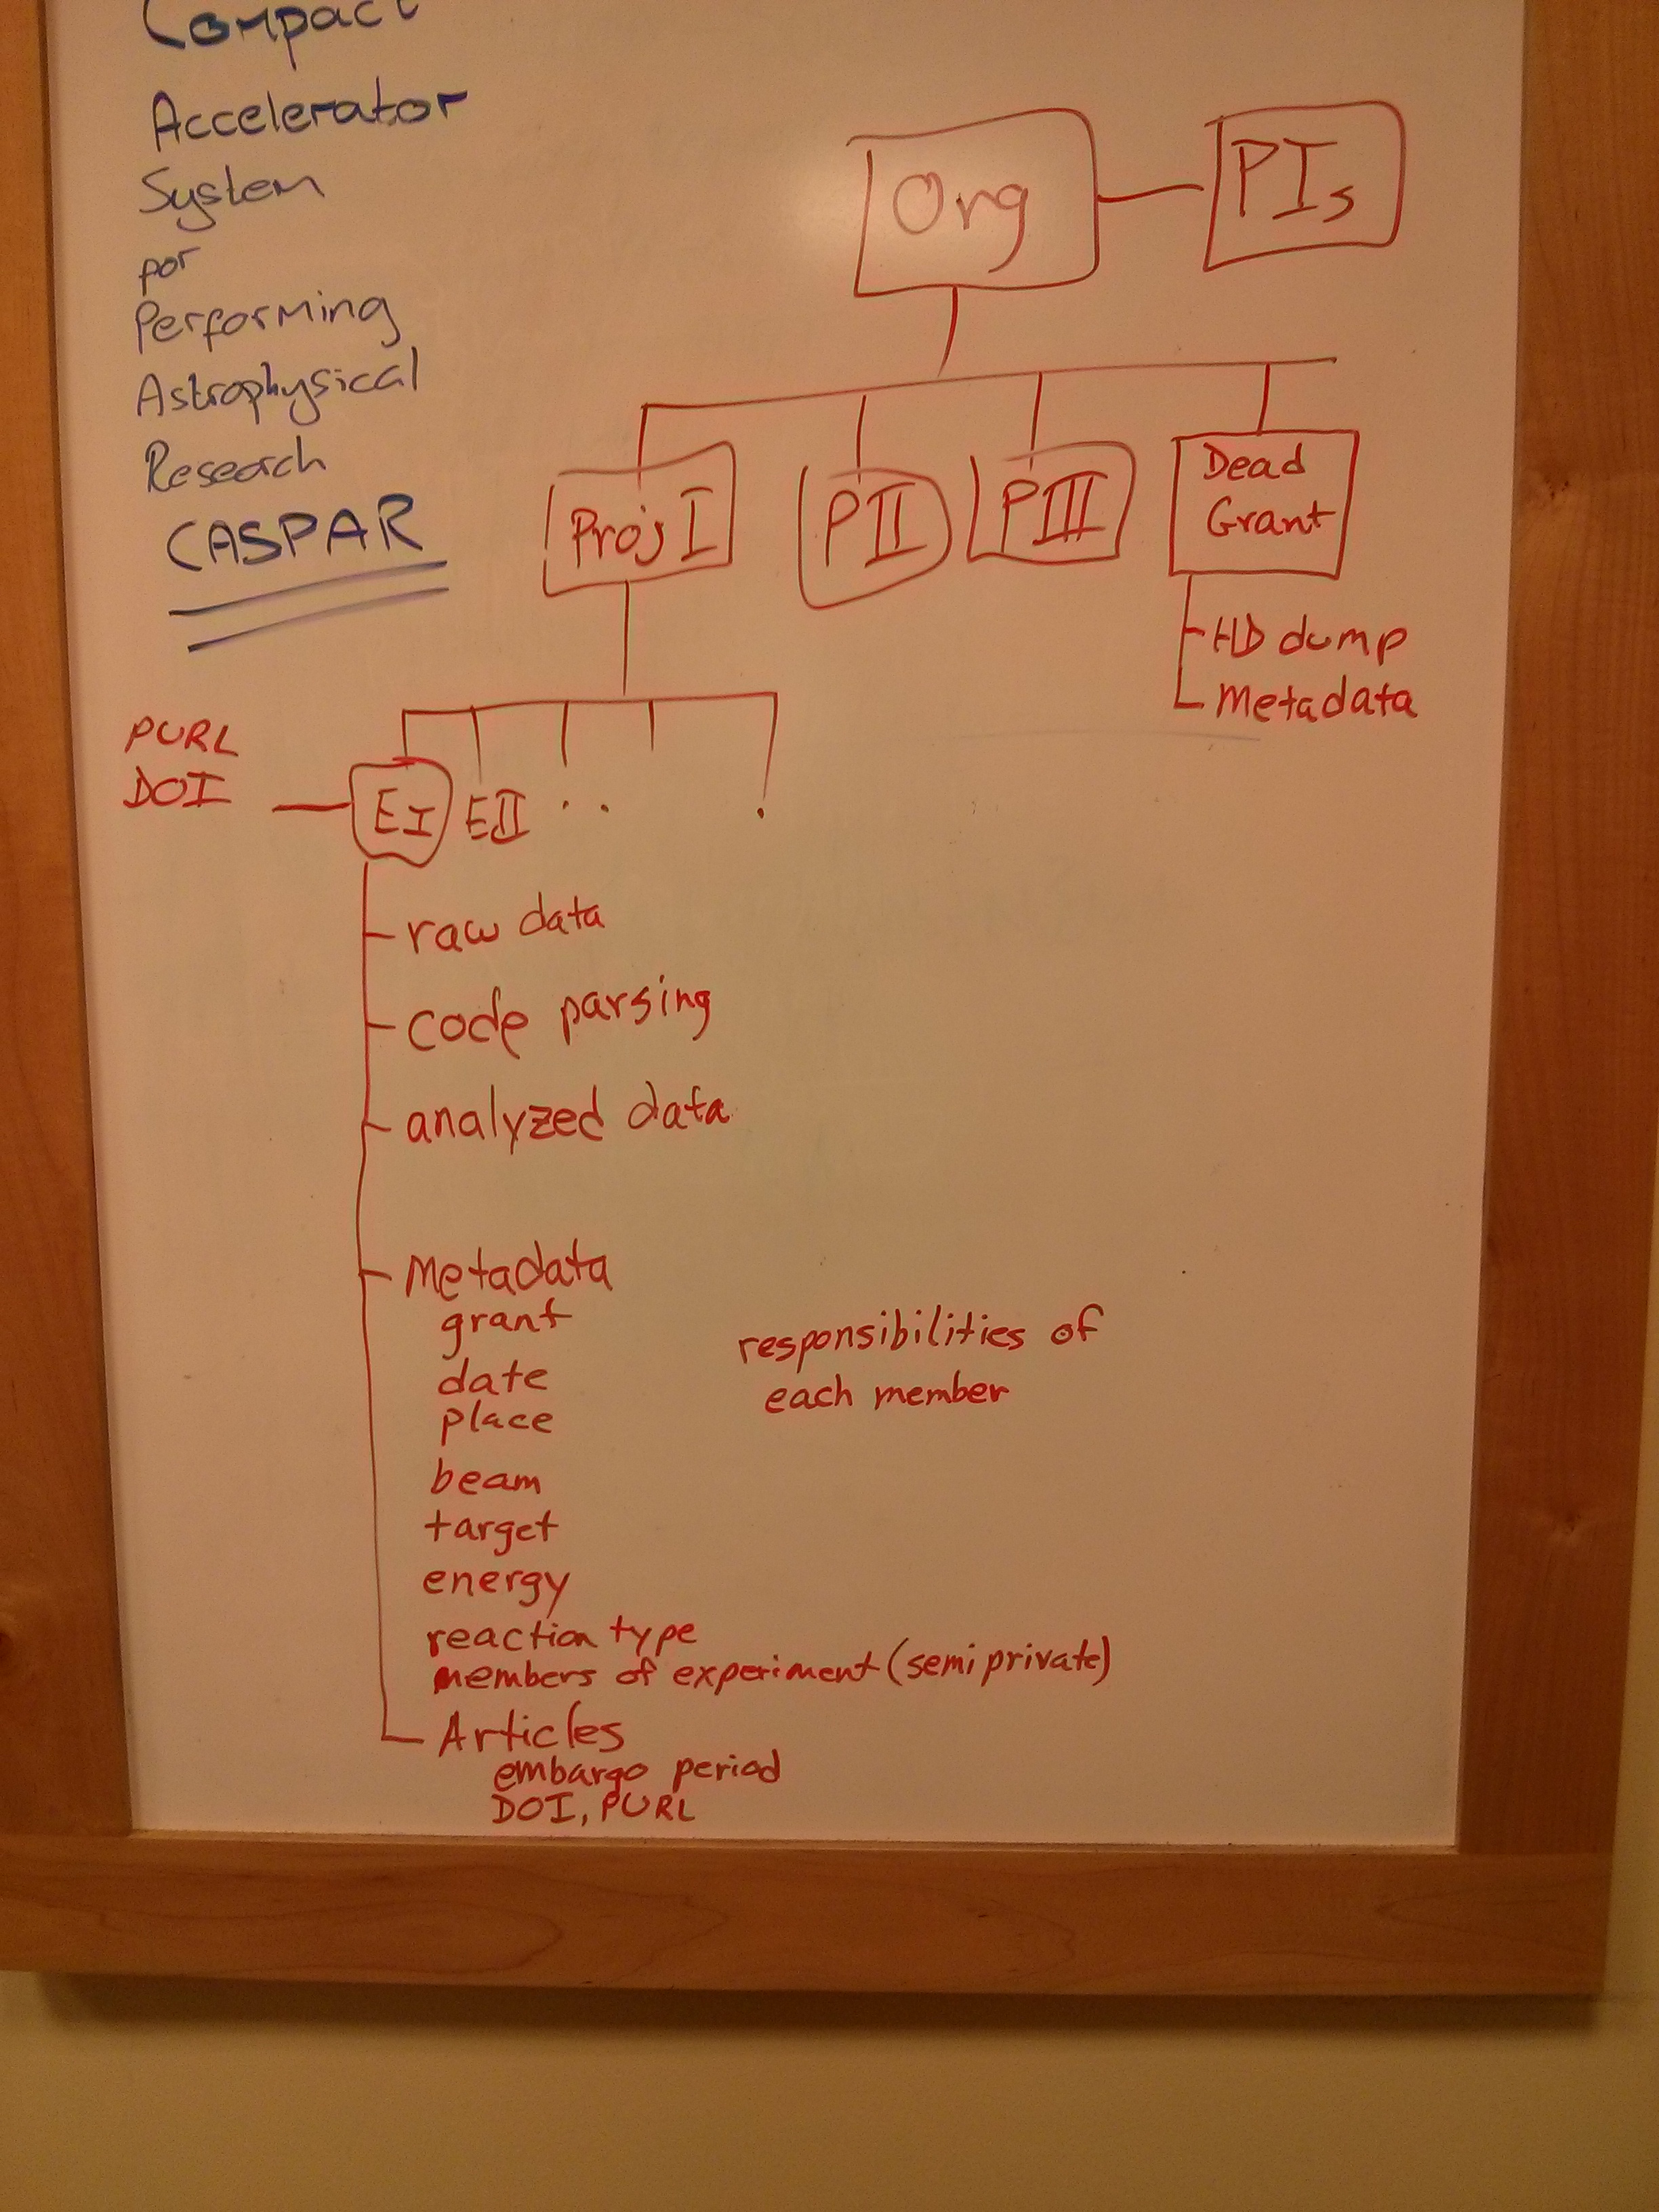 Compact
Accelerator
System
por
Performing
Astrophysical
Research
CASPAR
Org
PIs
Proj I
PII
PIII
Dead
Grant
HD dump
Metadata
PURL
DOI
EI
EII
. .
.
raw data
code parsing
analyzed data
Metadata
grant
date
place
beam
target
energy
reaction type
members of experiment (semi private)
responsibilities of
each member
Articles
embargo period
DOI, PURL